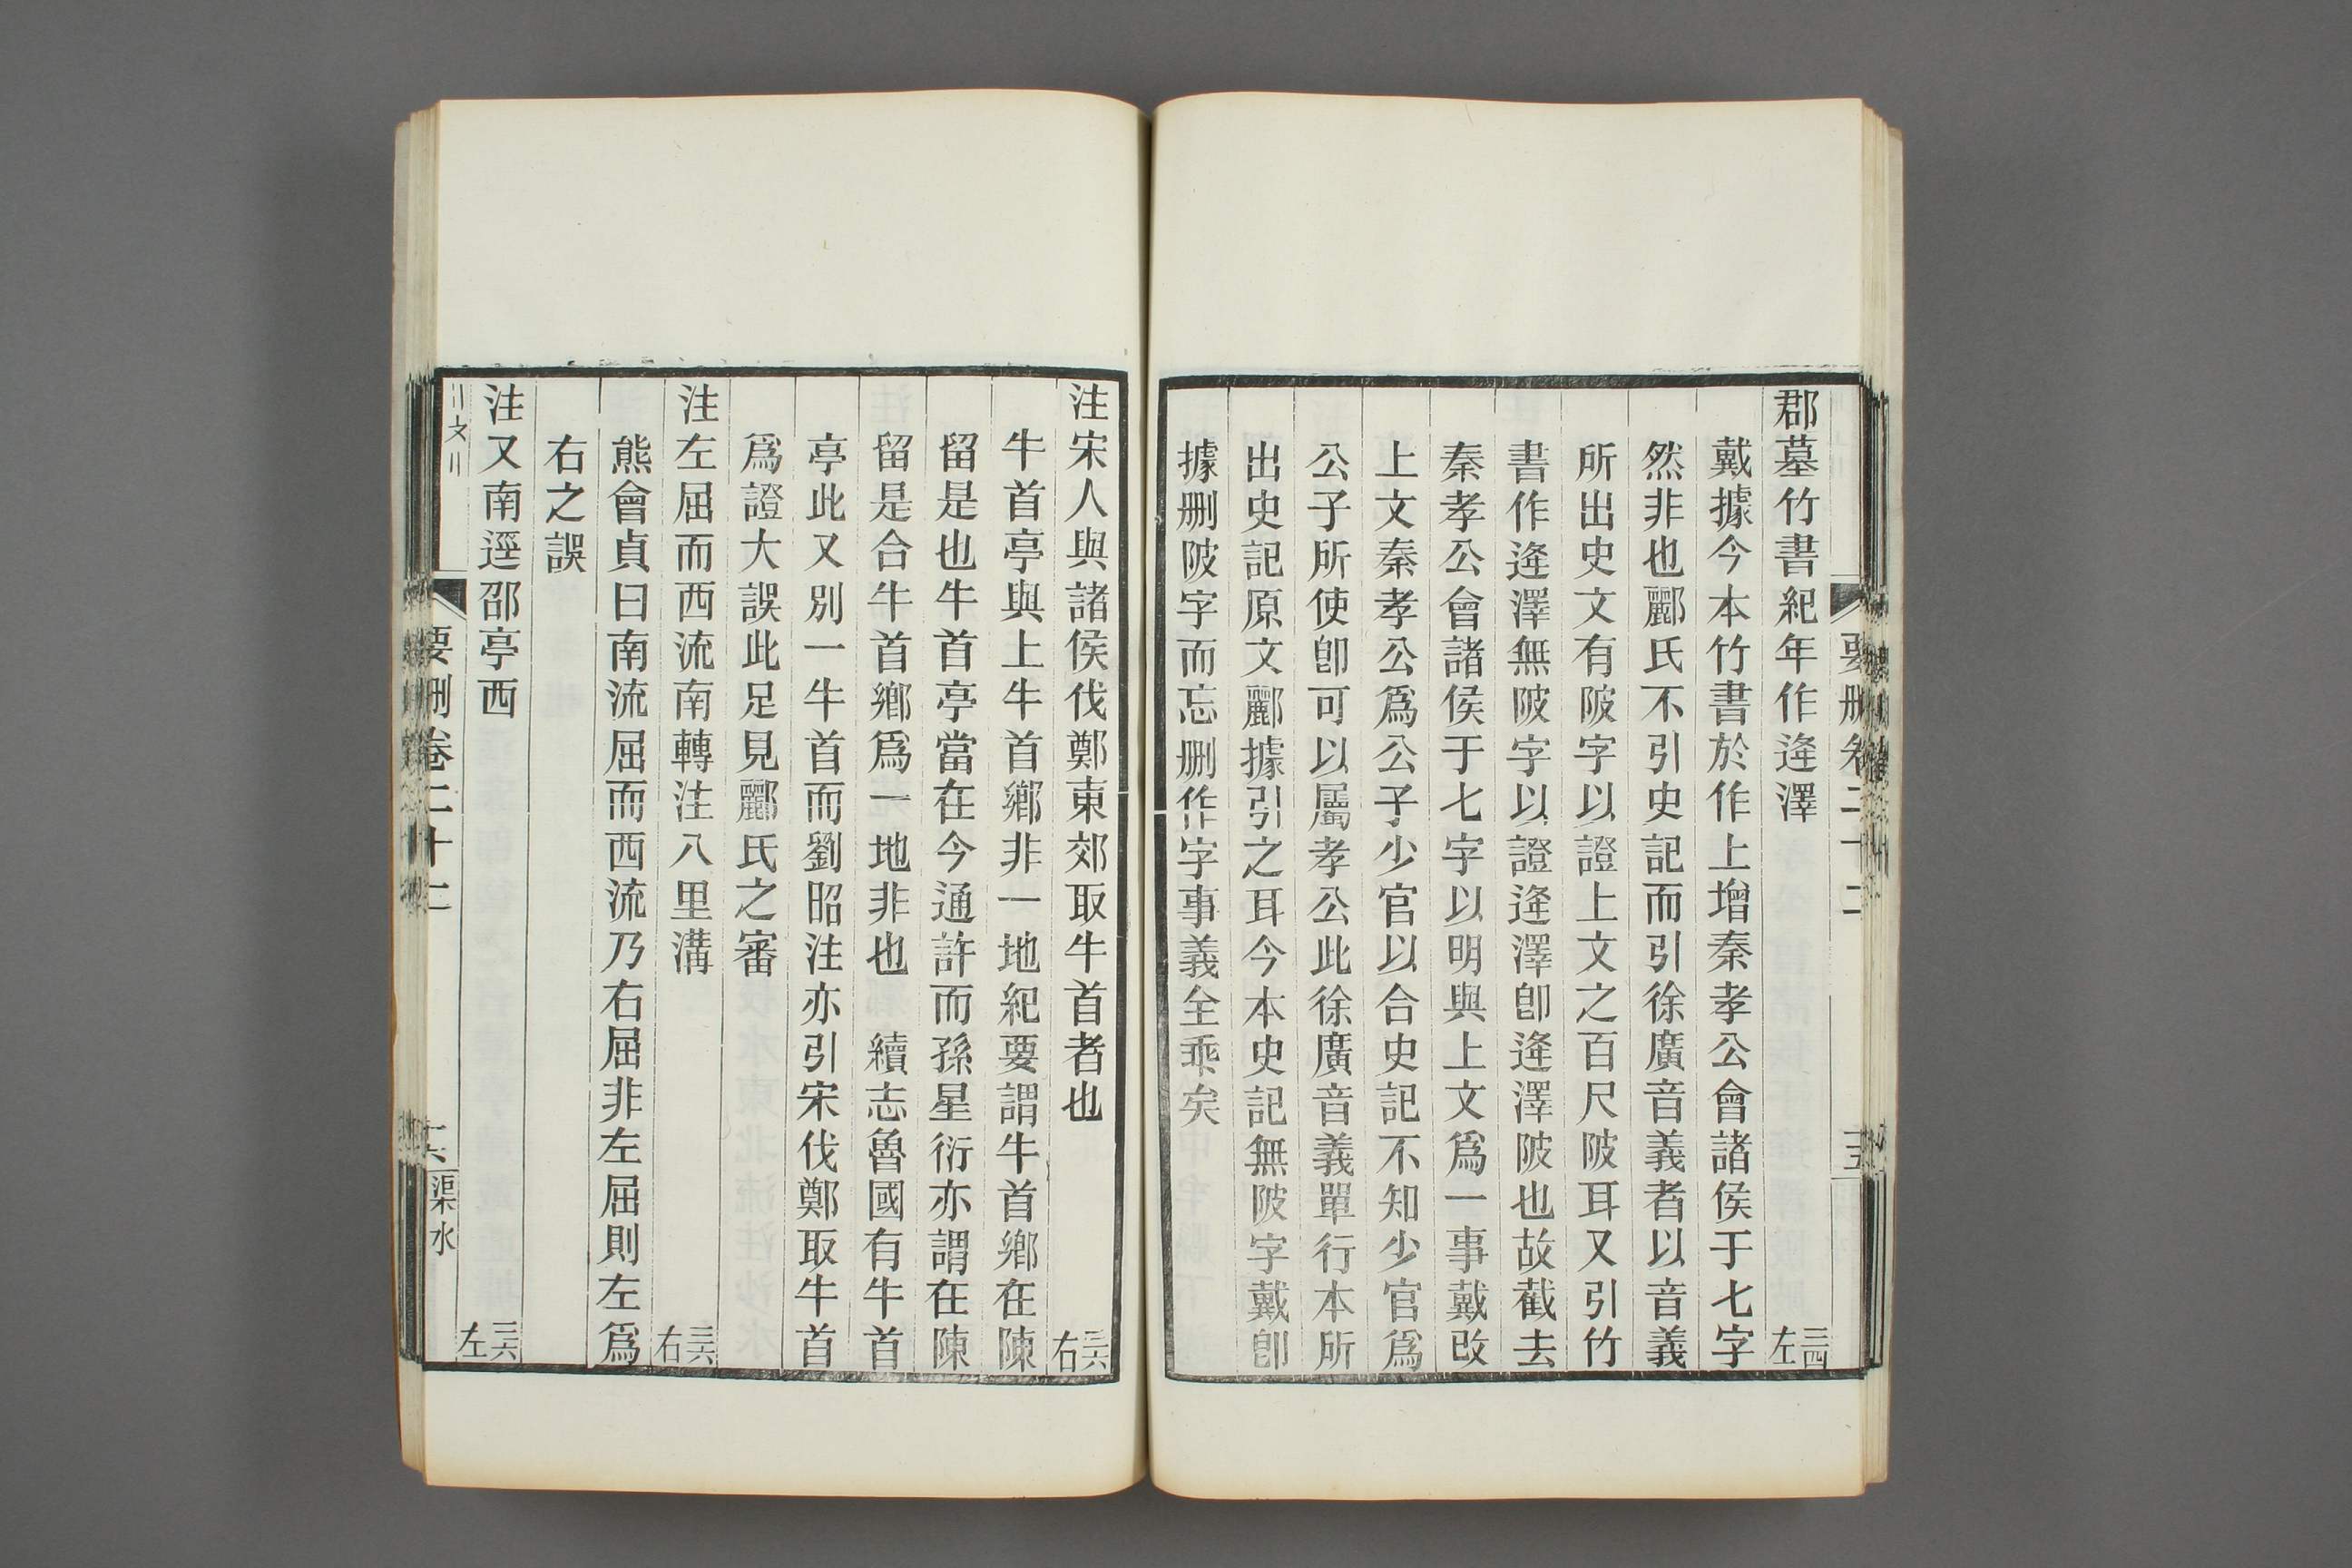 要刪卷二十二
十五
郡墓竹書紀年作逄澤 三四左
戴據今本竹書於作上增秦孝公會諸侯于七字
然非也酈氏不引史記而引徐廣音義者以音義
所出史文有陂字以證上文之百尺陂耳又引竹
書作逄澤無陂字以證逄澤卽逄澤陂也故截去
秦孝公會諸侯于七字以明與上文爲一事戴改
上文秦孝公爲公子少官以合史記不知少官爲
公子所使卽可以屬孝公此徐廣音義單行本所
出史記原文酈據引之耳今本史記無陂字戴卽
據刪陂字而忘刪作字事義全乘矣
注宋人與諸侯伐鄭東郊取牛首者也 三六右
牛首亭與上牛首鄉非一地紀要謂牛首鄉在陳
留是也牛首亭當在今通許而孫星衍亦謂在陳
留是合牛首鄉爲一地非也 續志魯國有牛首
亭此又別一牛首而劉昭注亦引宋伐鄭取牛首
爲證大誤此足見酈氏之審
注左屈而西流南轉注八里溝 三六右
熊會貞曰南流屈而西流乃右屈非左屈則左爲
右之誤
注又南逕邵亭西 三六左
要刪卷二十二
十六
渠水